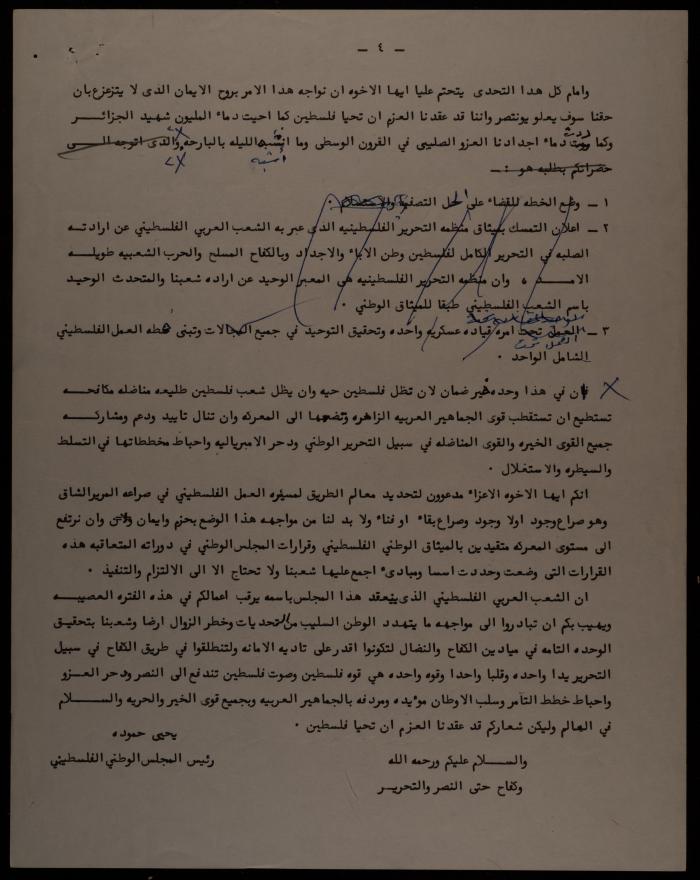 - ٤ -
وامام كل هذا التحدى يتحتم عليا ايها الاخوه ان نواجه هذا الامر بروح الايمان الذى لا يتزعزع بان
حقنا سوف يعلو يونتصر واننا قد عقدنا العزم ان تحيا فلسطين كما احيت دماء المليون شهيد الجزائـــر
وكما روت دماء اجدادنا الغزو الصليبى في القرون الوسطى وما اشبه الليله بالبارحه والذى اتوجه الـــى
أشبه
حضراتكم بطلبه هو :ـ
١ ـ وضع الخطه للقضاء على الحل التصفيه والاستسلام .
٢ ـ اعلان التمسك بميثاق منظمه التحرير الفلسطينيه الذى عبر به الشعب العربي الفلسطيني عن ارادتـه
الصلبه في التحرير الكامل لفلسطين وطن الاباء والاجداد وبالكفاح المسلح والحرب الشعبيه طويلــه
الامــــد ، وان منظمه التحرير الفلسطينيه هى المعبر الوحيد عن اراده شعبنا والمتحدث الوحيـد
باسم الشعب الفلسطيني طبقا للميثاق الوطني .
٣ ـ العمل تحت امره قياده عسكريه واحده وتحقيق التوحيد في جميع المجالات وتبنى خطه العمل الفلسطيني
العمل تحت
الشامل الواحد .
فان في هذا وحده خير ضمان لان تظل فلسطين حيه وان يظل شعب فلسطين طليعه مناضله مكافحــه
تستطيع ان تستقطب قوى الجماهير العربيه الزاهره وتضمها الى المعركه وان تنال تاييد ودعم ومشاركــه
جميع القوى الخيره والقوى المناضله في سبيل التحرير الوطني ودحر الامبرياليه واحباط مخططاتها في التسلط
والسيطره والاستغلال .
انكم ايها الاخوه الاعزاء مدعوون لتحديد معالم الطريق لمسيره العمل الفلسطيني في صراعه المرير الشاق
وهو صراع وجود اولا وجود وصراع بقاء او فناء ولا بد لنا من مواجهه هذا الوضع بحزم وايمان وان نرتفع
الى مستوى المعركه متقيدين بالميثاق الوطني الفلسطيني وقرارات المجلس الوطني في دوراته المتعاقبه هذه
القرارات التى وضعت وحددت اسسا ومبادىء اجمع عليها شعبنا ولا تحتاج الا الى الالتزام والتنفيذ .
ان الشعب العربي الفلسطيني الذى ينعقد هذا المجلس باسمه يرقب اعمالكم في هذه الفتره العصيبــه
ويهيب بكم ان تبادروا الى مواجهه ما يتهدد الوطن السليب من التحديات وخطر الزوال ارضا وشعبنا بتحقيـق
الوحده التامه في ميادين الكفاح والنضال لتكونوا اقدر على تاديه الامانه ولتنطلقوا في طريق الكفاح في سبيل
التحرير يدا واحده وقلبا واحدا وقوه واحده هي قوه فلسطين وصوت فلسطين تندفع الى النصر ودحر الغـــزو
واحباط خطط التآمر وسلب الاوطان مؤيده ومردفه بالجماهير العربيه وبجميع قوى الخير والحريه والســـلام
في العالم وليكن شعاركم قد عقدنا العزم ان تحيا فلسطين .
يحيى حموده
والســـــلام عليكم ورحمه الله
رئيس المجلس الوطني الفلسطيني
وكفاح حتى النصر والتحريـر